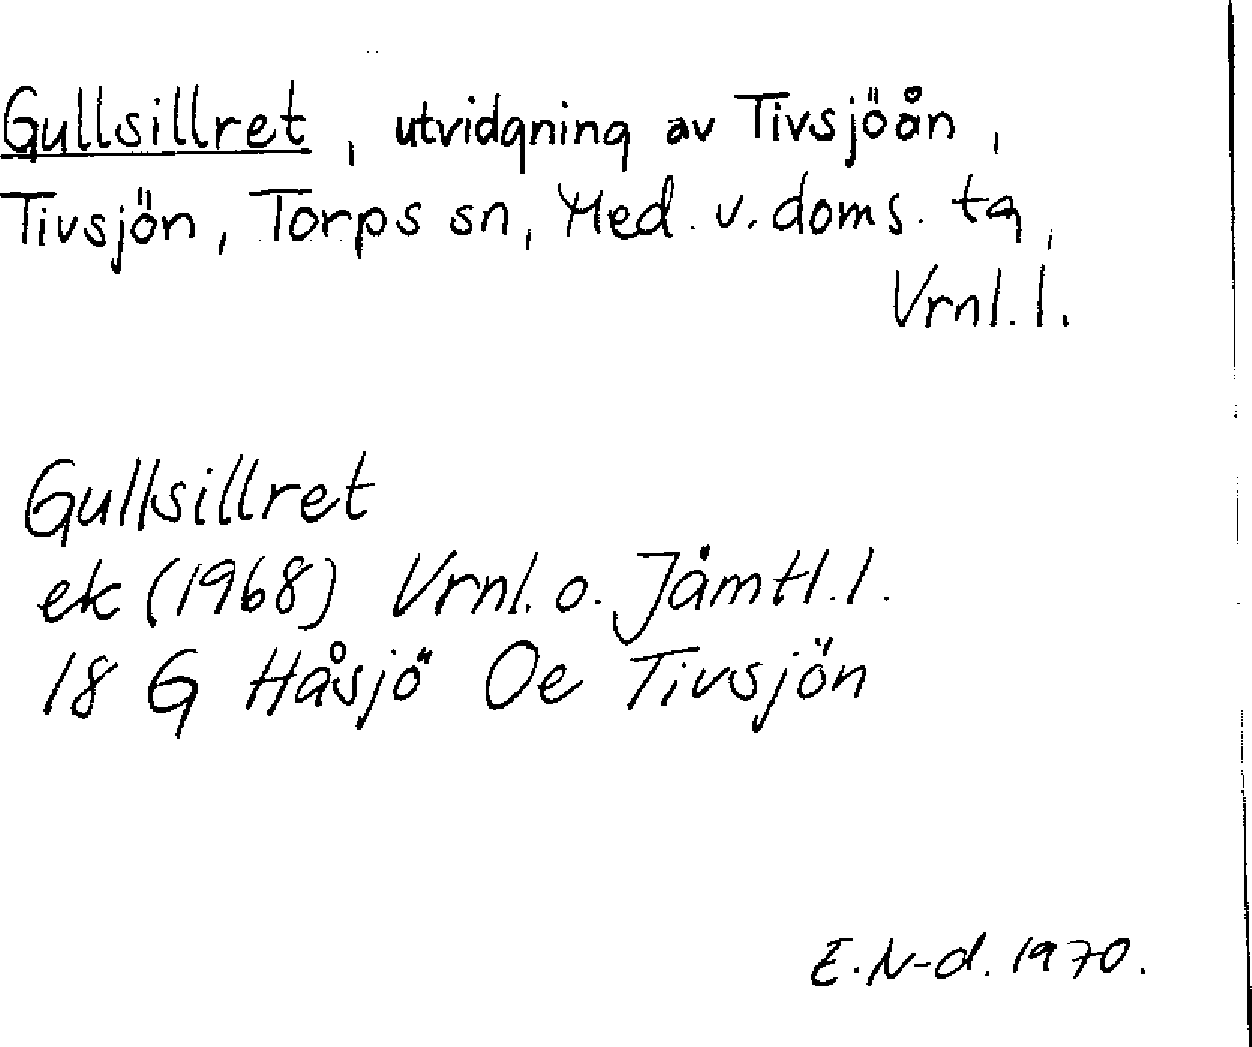 Gullsillret, utvidgning av Tivsjöån,
Tivsjön, Torps sn, Med. v. doms. tg,
Vrnl. l.
Gullsillret
ek (1968) Vrnl. o. Jämtl. l.
18 G Håsjö Oe Tivsjön
E. N-d. 1970.